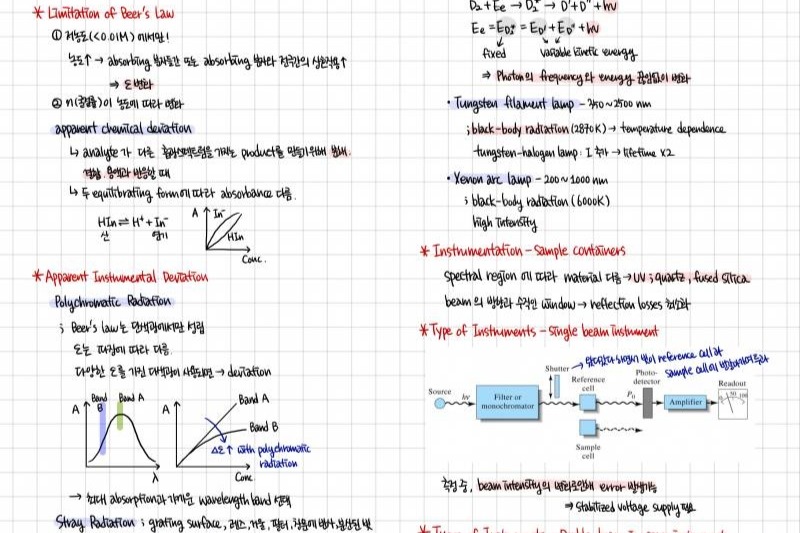 * Limitation of Beer's Law
① 저농도(<0.01M)에서만!
농도↑ → absorbing 분자들간 또는 absorbing 분자와 전극간의 상호작용↑
⇒ ε변화
② n(굴절률)이 농도에 따라 변화
apparent chemical deviation
↳ analyte가 다른 흡수스펙트럼을 가지는 product를 만들기위해
결합, 용매과 반응할 때
↳ 두 equilibrating form에 따라 absorbance 다름.
HIn ⇌ H⁺ + In⁻
산 염기
A In⁻
HIn
Conc.
* Apparent Instrumental Deviation
Polychromatic Radiation
; Beer's law는 단색광에서만 성립
ε는 파장에 따라 다름.
다양한 ε를 가진 다색광이 사용되면 → deviation
Band B Band A
A
λ
A Band A
Band B
Δε↑ with polychromatic radiation
Conc
→ 최대 absorption과 가까운 wavelength band 선택
Stray Radiation ; grating surface, 렌즈, 거울, 필터,
D₂ + Ee → D₂* → D' + D'' + hν
Ee = E_D₂* = E_D' + E_D'' + hν
fixed variable kinetic energy
⇒ Photon의 frequency와 energy 끊임없이 변화
• Tungsten filament lamp - 350 ~ 2500 nm
; black-body radiation (2870K) → temperature dependence
tungsten-halogen lamp : I 추가 → lifetime X2
• Xenon arc lamp - 200 ~ 1000 nm
; black-body radiation (6000K)
high intensity
* Instrumentation - Sample containers
spectral region에 따라 material 다름 → UV ; quartz, fused silica
beam의 방향과 수직인 window → reflection losses 최소화
* Type of Instruments - Single beam instrument
Shutter → 빛이 reference cell과
sample cell에
Source
hν
Filter or monochromator
Reference cell
P₀
Photo-detector
Amplifier
Readout
0 50 100
Sample cell
측정 중, beam intensity의 변화로인해 error 발생가능
⇒ Stabilized voltage supply 필요